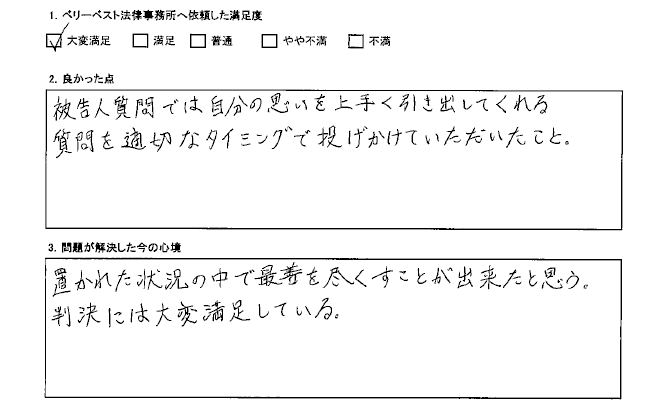 1. ベリーベスト法律事務所へ依頼した満足度
☑ 大変満足 □ 満足 □ 普通 □ やや不満 □ 不満
2. 良かった点
被告人質問では自分の思いを上手く引き出してくれる
質問を適切なタイミングで投げかけていただいたこと。
3. 問題が解決した今の心境
置かれた状況の中で最善を尽くすことが出来たと思う。
判決には大変満足している。